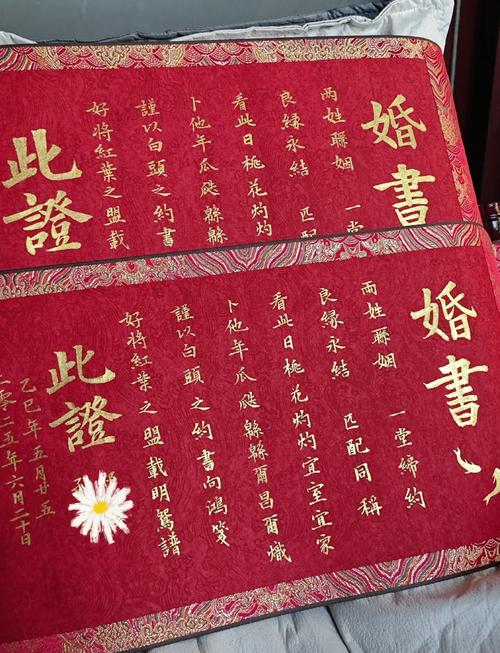 婚書
兩姓聯姻 一堂
良緣永結 匹配
看此日桃花灼灼
卜他年瓜瓞緜緜
謹以白頭之約書
好將紅葉之盟載
此證
婚書
兩姓聯姻 一堂締約
良緣永結 匹配同稱
看此日桃花灼灼宜室宜家
卜他年瓜瓞緜緜爾昌爾熾
謹以白頭之約書向鴻箋
好將紅葉之盟載明鴛譜
此證
乙巳年五月廿五
二零二五年六月二十日